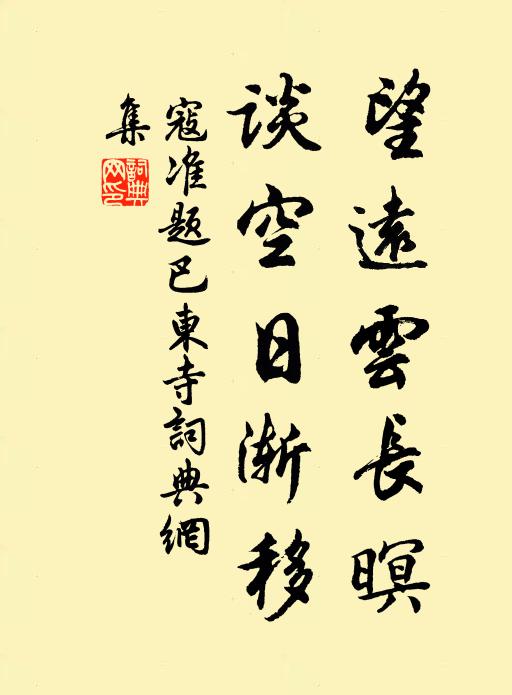 望遠雲長暝
談空日渐移
寇准題巴東寺詞典網
集
詞典网印